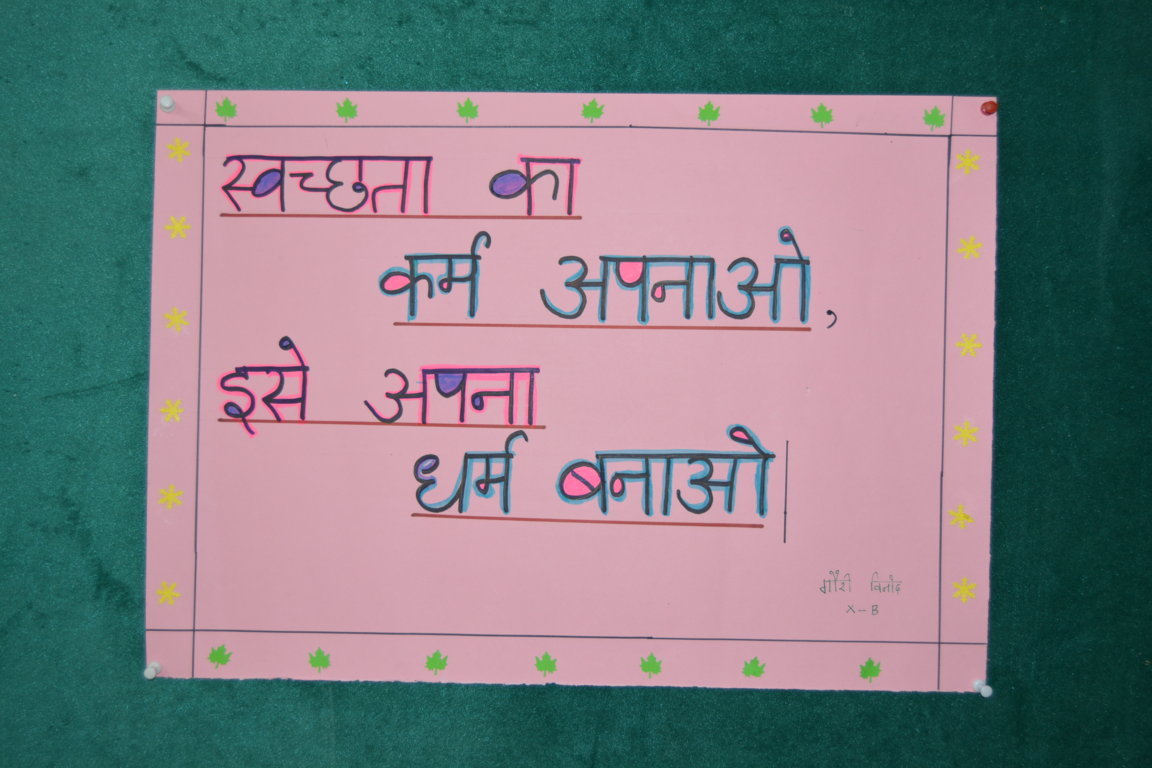 स्वच्छता का
कर्म अपनाओ,
इसे अपना
धर्म बनाओ।
गौरी विनोद
X-B